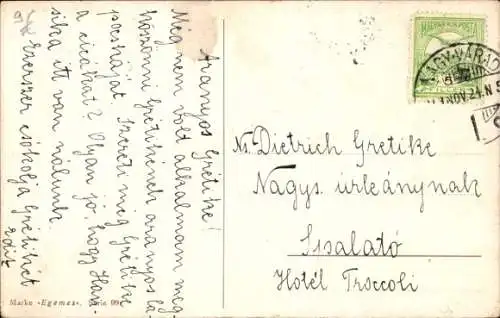 Aranyos Grétike!
Még nem volt alkalmam meg-
köszönni Grétikének aranyos la-
pocskáját. Szereti még Grétike
a cicákat? Olyan jó, hogy Han-
sika itt van nálunk.
Ezerszer csókolja Grétikét
Edit
Marke »Egemes«. Serie 99
MAGYAR KIR. POSTA
FILLÉR
NAGY-VÁRAD
Ns. Dietrich Gretike
Nagys. úrleánynak
Spalató
Hotél Troccoli